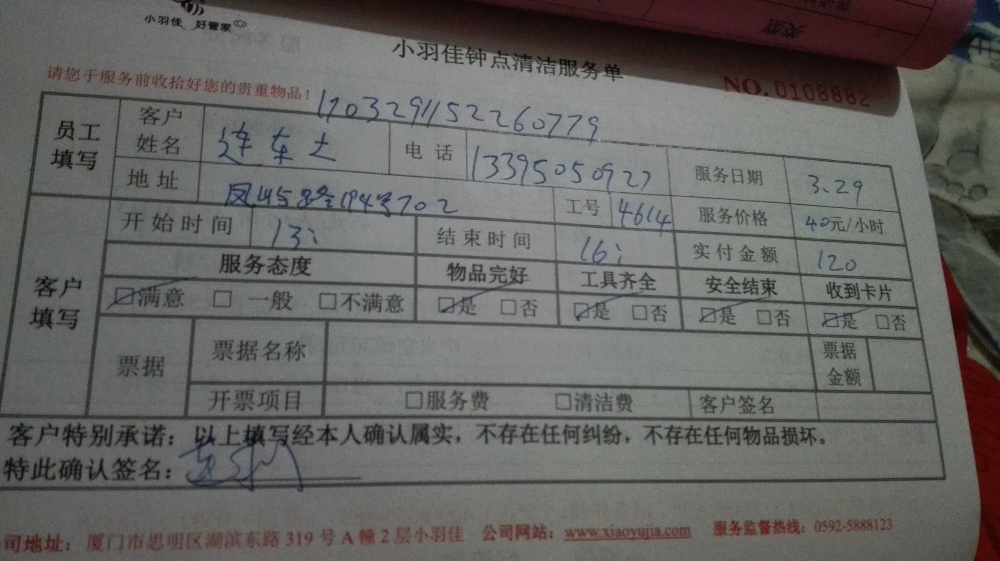 小羽佳 好管家
类型
小羽佳钟点清洁服务单
请您于服务前收拾好您的贵重物品！
NO. 0108882
17032911522260779
员工填写
客户姓名
连女士
电话
13395050927
服务日期
3.29
地址
702
工号
4614
服务价格
40元/小时
客户填写
开始时间
13:
结束时间
16:
实付金额
120
服务态度
物品完好
工具齐全
安全结束
收到卡片
☑满意 □一般 □不满意
☑是 □否
☑是 □否
☑是 □否
☑是 □否
票据
票据名称
票据金额
开票项目
□服务费 □清洁费
客户签名
客户特别承诺：以上填写经本人确认属实，不存在任何纠纷，不存在任何物品损坏。
特此确认签名：
司地址：厦门市思明区湖滨东路 319 号 A 幢 2 层小羽佳 公司网站：www.xiaoyujia.com 服务监督热线：0592-5888123